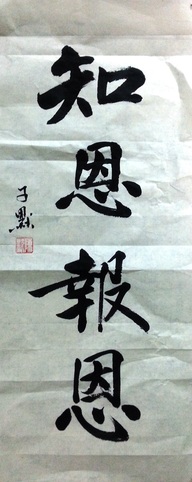 知恩報恩
子默